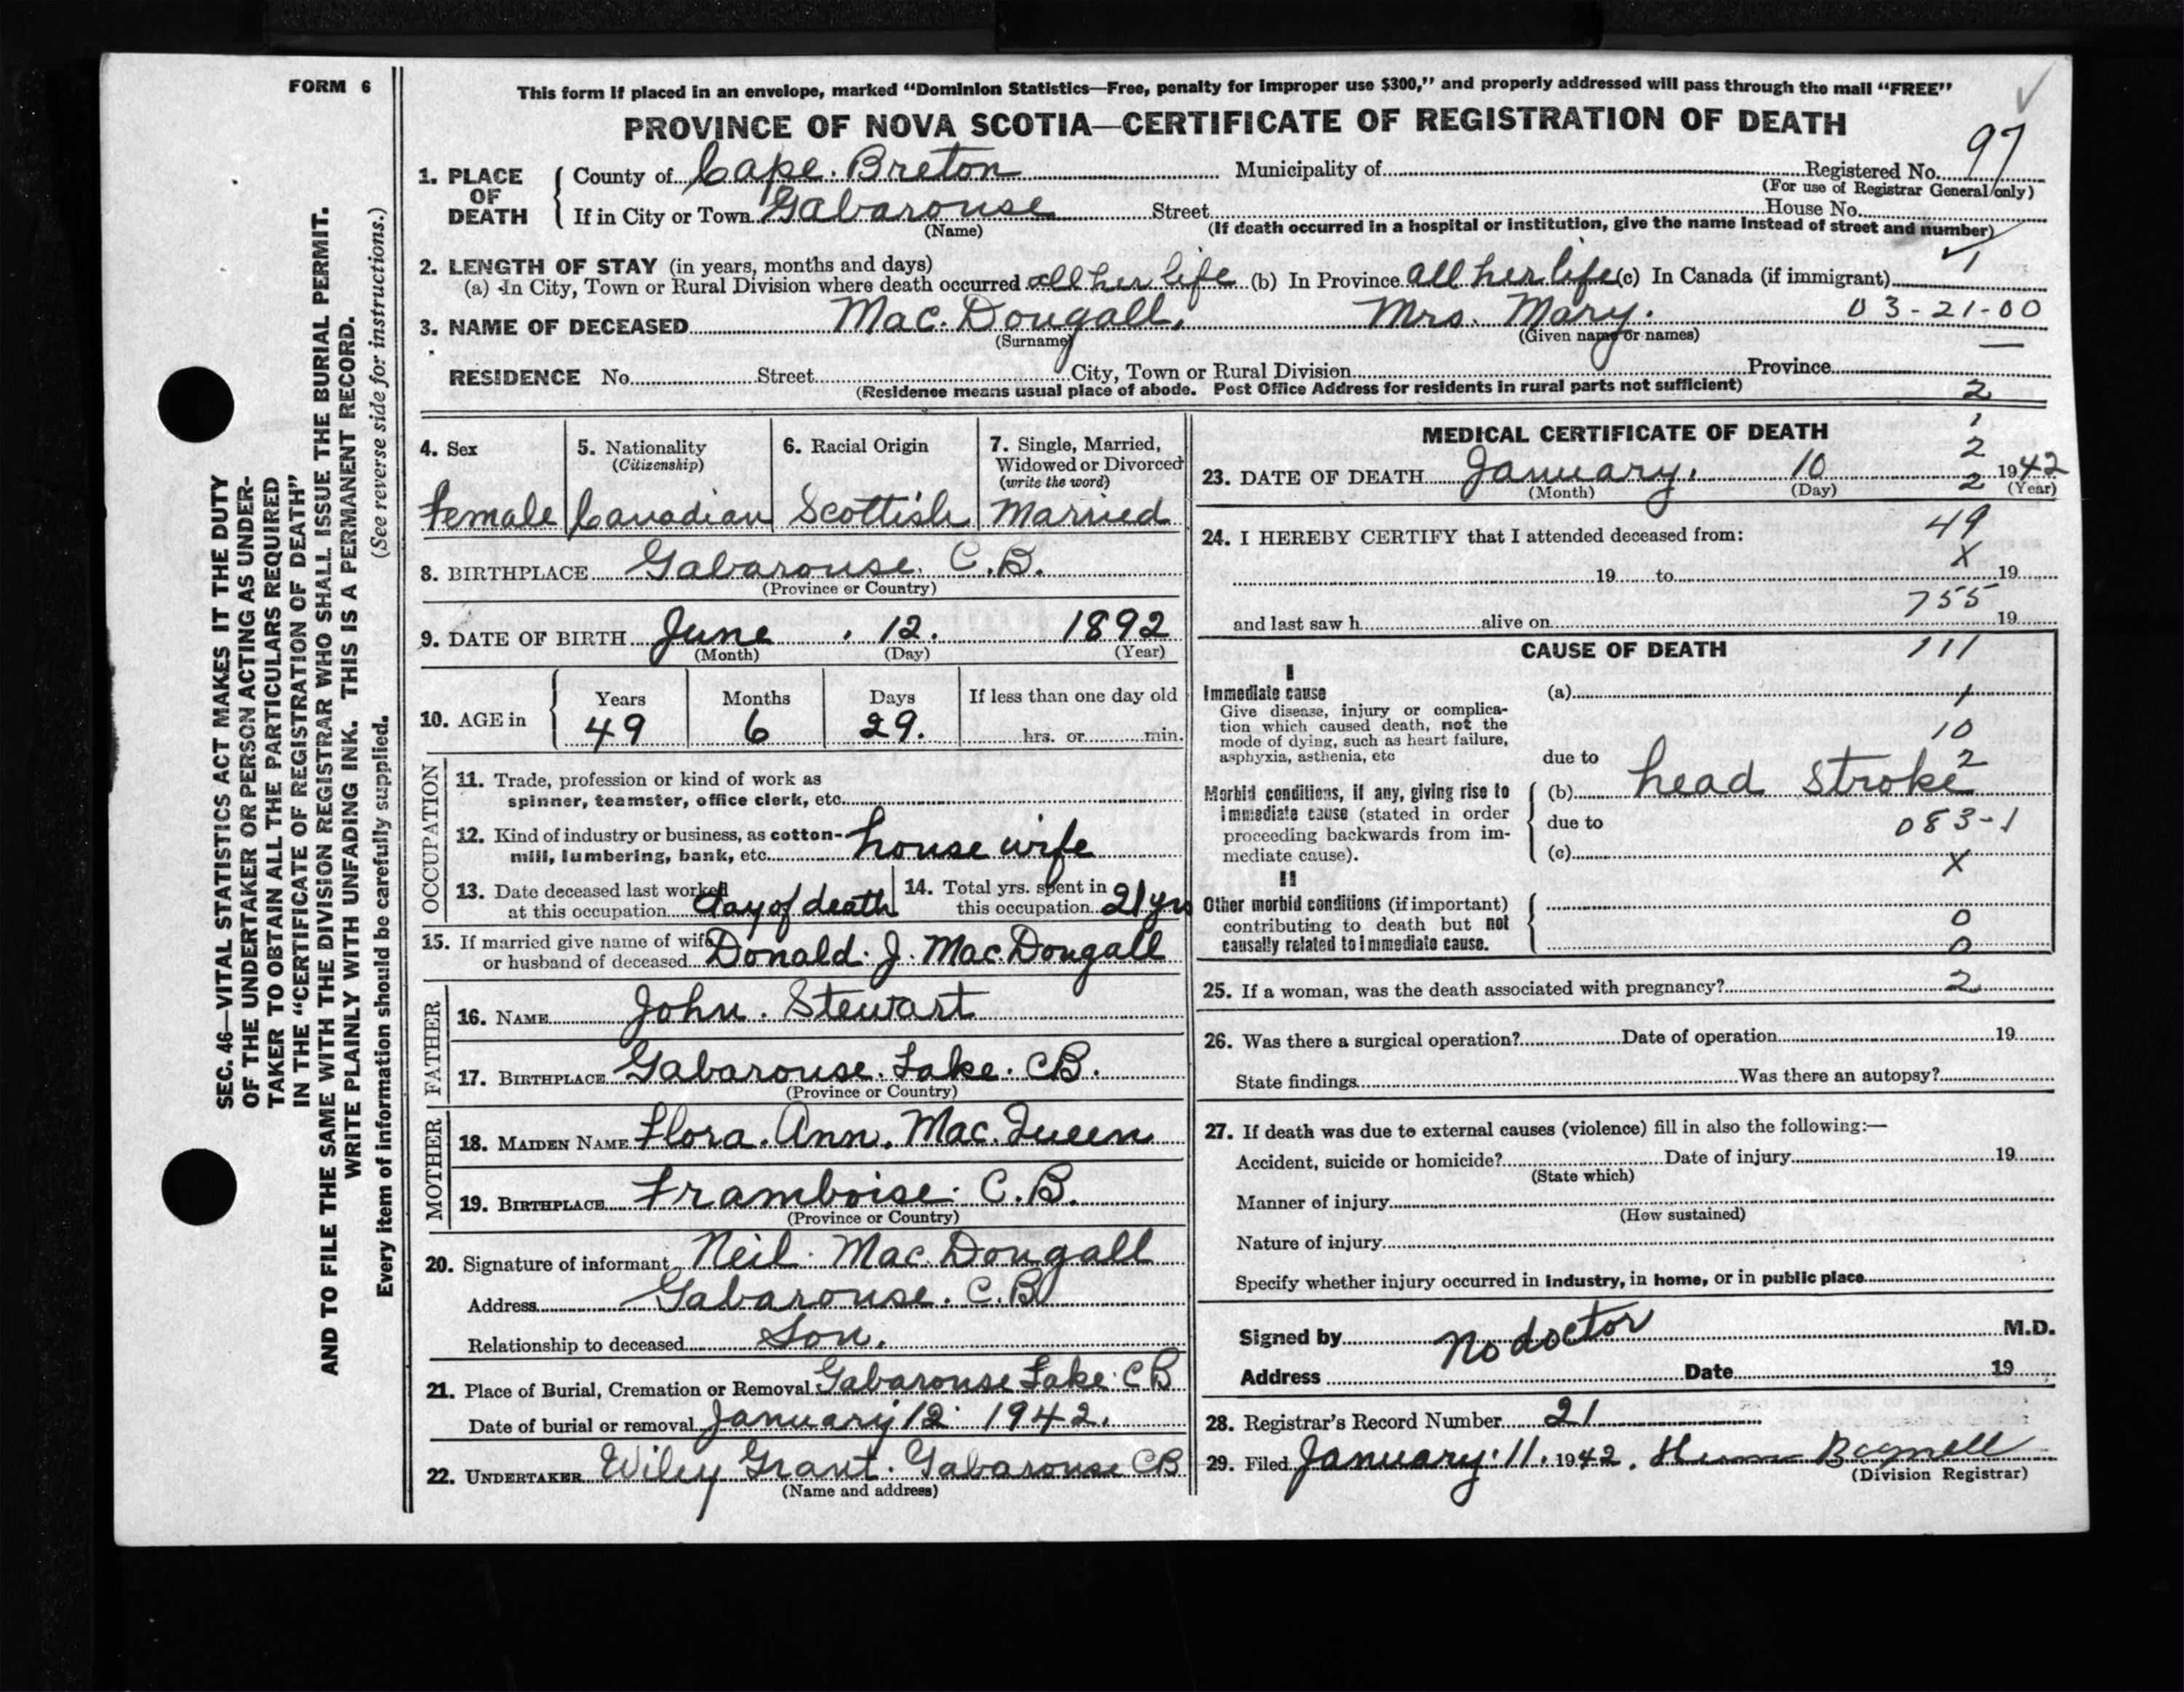 FORM 6
This form if placed in an envelope, marked "Dominion Statistics—Free, penalty for improper use $300," and properly addressed will pass through the mail "FREE"
PROVINCE OF NOVA SCOTIA—CERTIFICATE OF REGISTRATION OF DEATH
SEC. 46—VITAL STATISTICS ACT MAKES IT THE DUTY
OF THE UNDERTAKER OR PERSON ACTING AS UNDER-
TAKER TO OBTAIN ALL THE PARTICULARS REQUIRED
IN THE "CERTIFICATE OF REGISTRATION OF DEATH"
AND TO FILE THE SAME WITH THE DIVISION REGISTRAR WHO SHALL ISSUE THE BURIAL PERMIT.
WRITE PLAINLY WITH UNFADING INK. THIS IS A PERMANENT RECORD.
Every item of information should be carefully supplied. (See reverse side for instructions.)
1. PLACE OF DEATH
County of Cape Breton Municipality of Registered No. 97
(For use of Registrar General only)
If in City or Town Gabarouse Street House No.
(Name) (If death occurred in a hospital or institution, give the name instead of street and number)
2. LENGTH OF STAY (in years, months and days)
(a) In City, Town or Rural Division where death occurred all her life (b) In Province all her life (c) In Canada (if immigrant)
3. NAME OF DECEASED Mac. Dougall, Mrs. Mary. 03-21-00
(Surname) (Given name or names)
RESIDENCE No. Street City, Town or Rural Division Province
(Residence means usual place of abode. Post Office Address for residents in rural parts not sufficient) 2
4. Sex
Female
5. Nationality
(Citizenship)
Canadian
6. Racial Origin
Scottish
7. Single, Married,
Widowed or Divorced
(write the word)
Married
8. BIRTHPLACE Gabarouse. C.B.
(Province or Country)
9. DATE OF BIRTH June . 12. 1892
(Month) (Day) (Year)
10. AGE in
Years Months Days If less than one day old
49 6 29. hrs. or min.
OCCUPATION
11. Trade, profession or kind of work as
spinner, teamster, office clerk, etc.
12. Kind of industry or business, as cotton-
mill, lumbering, bank, etc. house wife
13. Date deceased last worked
at this occupation day of death
14. Total yrs. spent in
this occupation 21 yrs
15. If married give name of wife
or husband of deceased Donald. J. Mac. Dougall
FATHER
16. NAME John. Stewart
17. BIRTHPLACE Gabarouse. Lake. CB.
(Province or Country)
MOTHER
18. MAIDEN NAME Flora. Ann. Mac. Queen
19. BIRTHPLACE Framboise. C.B.
(Province or Country)
20. Signature of informant Neil. Mac. Dougall
Address Gabarouse. C.B
Relationship to deceased Son.
21. Place of Burial, Cremation or Removal Gabarouse Lake CB
Date of burial or removal January 12 1942.
22. UNDERTAKER Wiley Grant. Gabarouse CB
(Name and address)
MEDICAL CERTIFICATE OF DEATH 1
2
23. DATE OF DEATH January. 10 2 1942
(Month) (Day) (Year)
24. I HEREBY CERTIFY that I attended deceased from: 49
X
19 to 19
755
and last saw h alive on 19
CAUSE OF DEATH 111
I
Immediate cause (a) 1
Give disease, injury or complica-
tion which caused death, not the 10
mode of dying, such as heart failure,
asphyxia, asthenia, etc due to 2
Morbid conditions, if any, giving rise to (b) head stroke
immediate cause (stated in order due to 083-1
proceeding backwards from im-
mediate cause). (c) X
II
Other morbid conditions (if important)
contributing to death but not 0
causally related to immediate cause. 0
25. If a woman, was the death associated with pregnancy? 2
26. Was there a surgical operation? Date of operation 19
State findings Was there an autopsy?
27. If death was due to external causes (violence) fill in also the following:—
Accident, suicide or homicide? Date of injury 19
(State which)
Manner of injury
(How sustained)
Nature of injury
Specify whether injury occurred in industry, in home, or in public place
Signed by No doctor M.D.
Address Date 19
28. Registrar's Record Number 21
29. Filed January. 11. 1942. Bagnell
(Division Registrar)